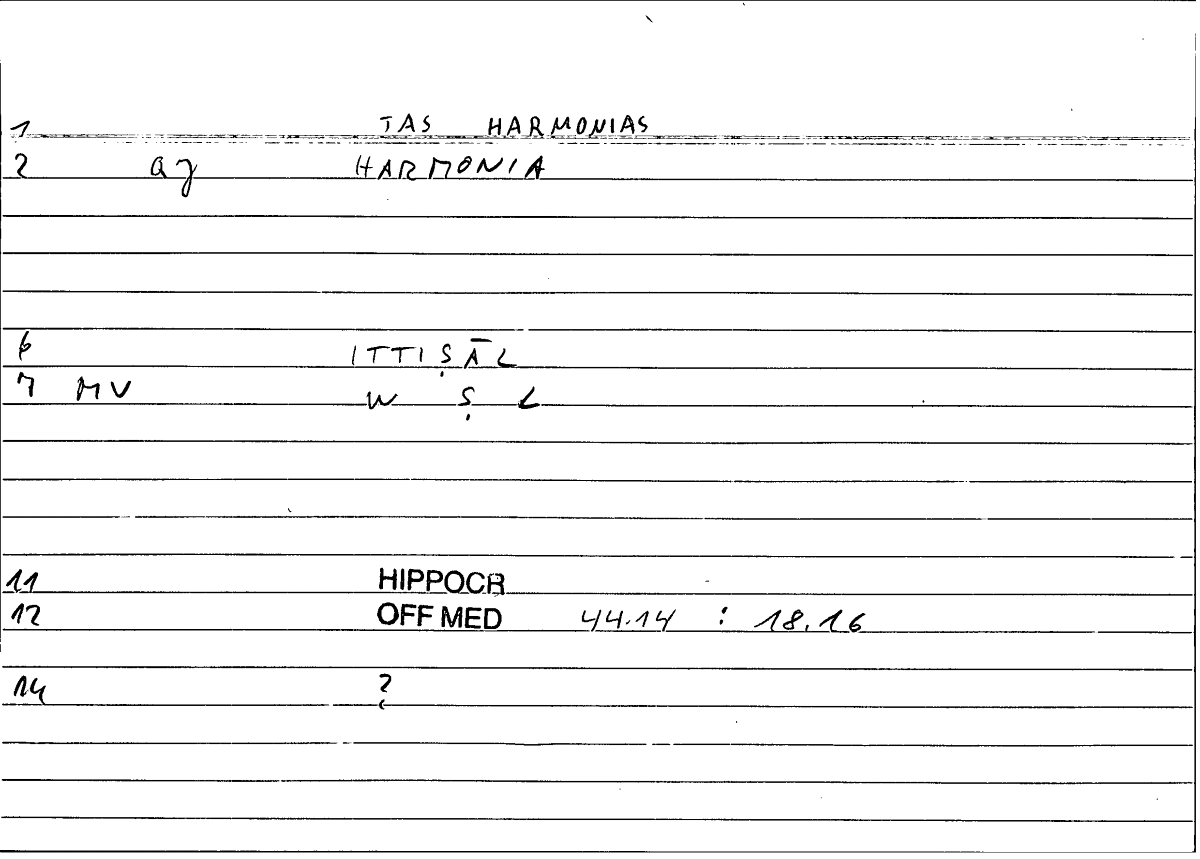 1 TAS HARMONIAS
2 az HARMONIA
6 ITTIṢĀL
7 MV W Ṣ L
11 HIPPOCR
12 OFF MED 44.14 : 18.16
14 ?